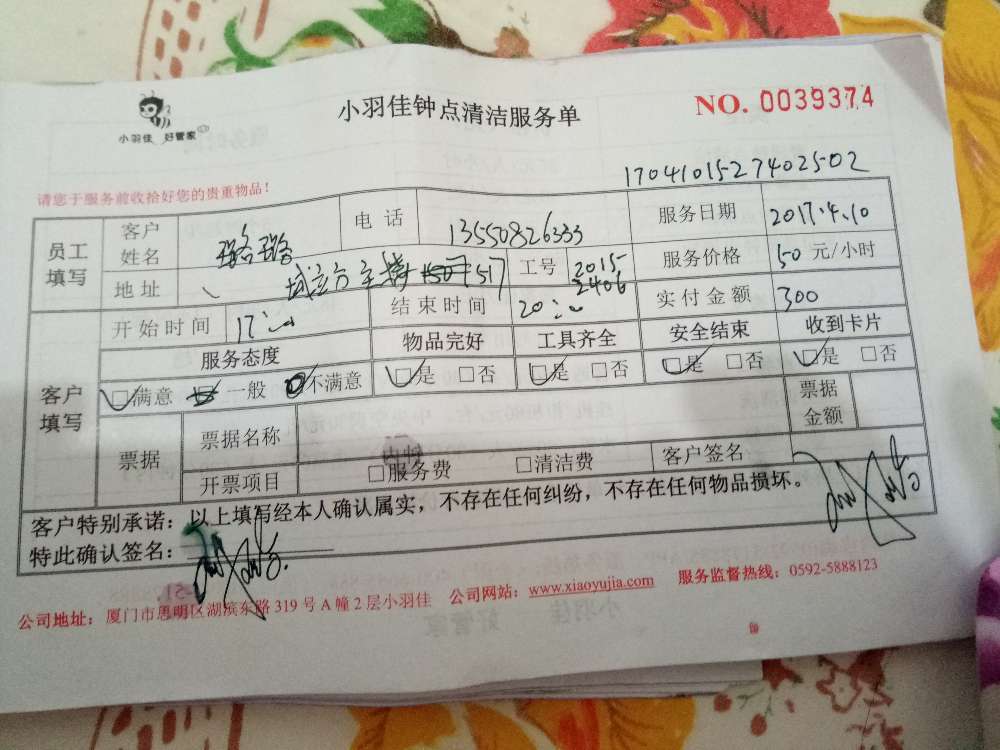 小羽佳 好管家
小羽佳钟点清洁服务单
NO. 0039374
17041015274025​02
请您于服务前收拾好您的贵重物品！
员工填写 客户姓名 璐璐 电话 13550826333 服务日期 2017.4.10
地址 517 工号 2015-2406 服务价格 50 元/小时
客户填写 开始时间 17:00 结束时间 20:00 实付金额 300
服务态度 物品完好 工具齐全 安全结束 收到卡片
☑满意 一般 不满意 ☑是 □否 ☑是 □否 ☑是 □否 ☑是 □否
票据 票据名称 票据金额
开票项目 □服务费 □清洁费 客户签名
客户特别承诺：以上填写经本人确认属实，不存在任何纠纷，不存在任何物品损坏。
特此确认签名：
公司地址：厦门市思明区湖滨东路 319 号 A 幢 2 层小羽佳 公司网站：www.xiaoyujia.com 服务监督热线：0592-5888123